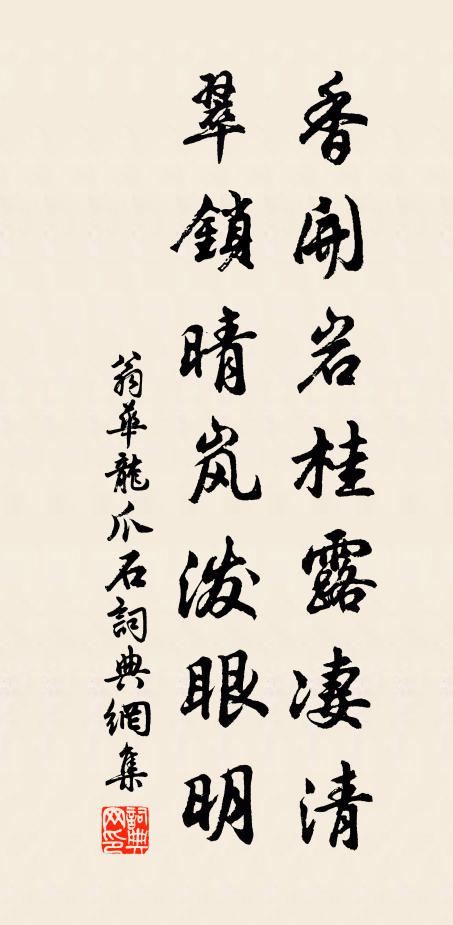 香開岩桂露凄清
翠鎖晴岚泼眼明
翁華龍爪石詞典網集
詞典
网印